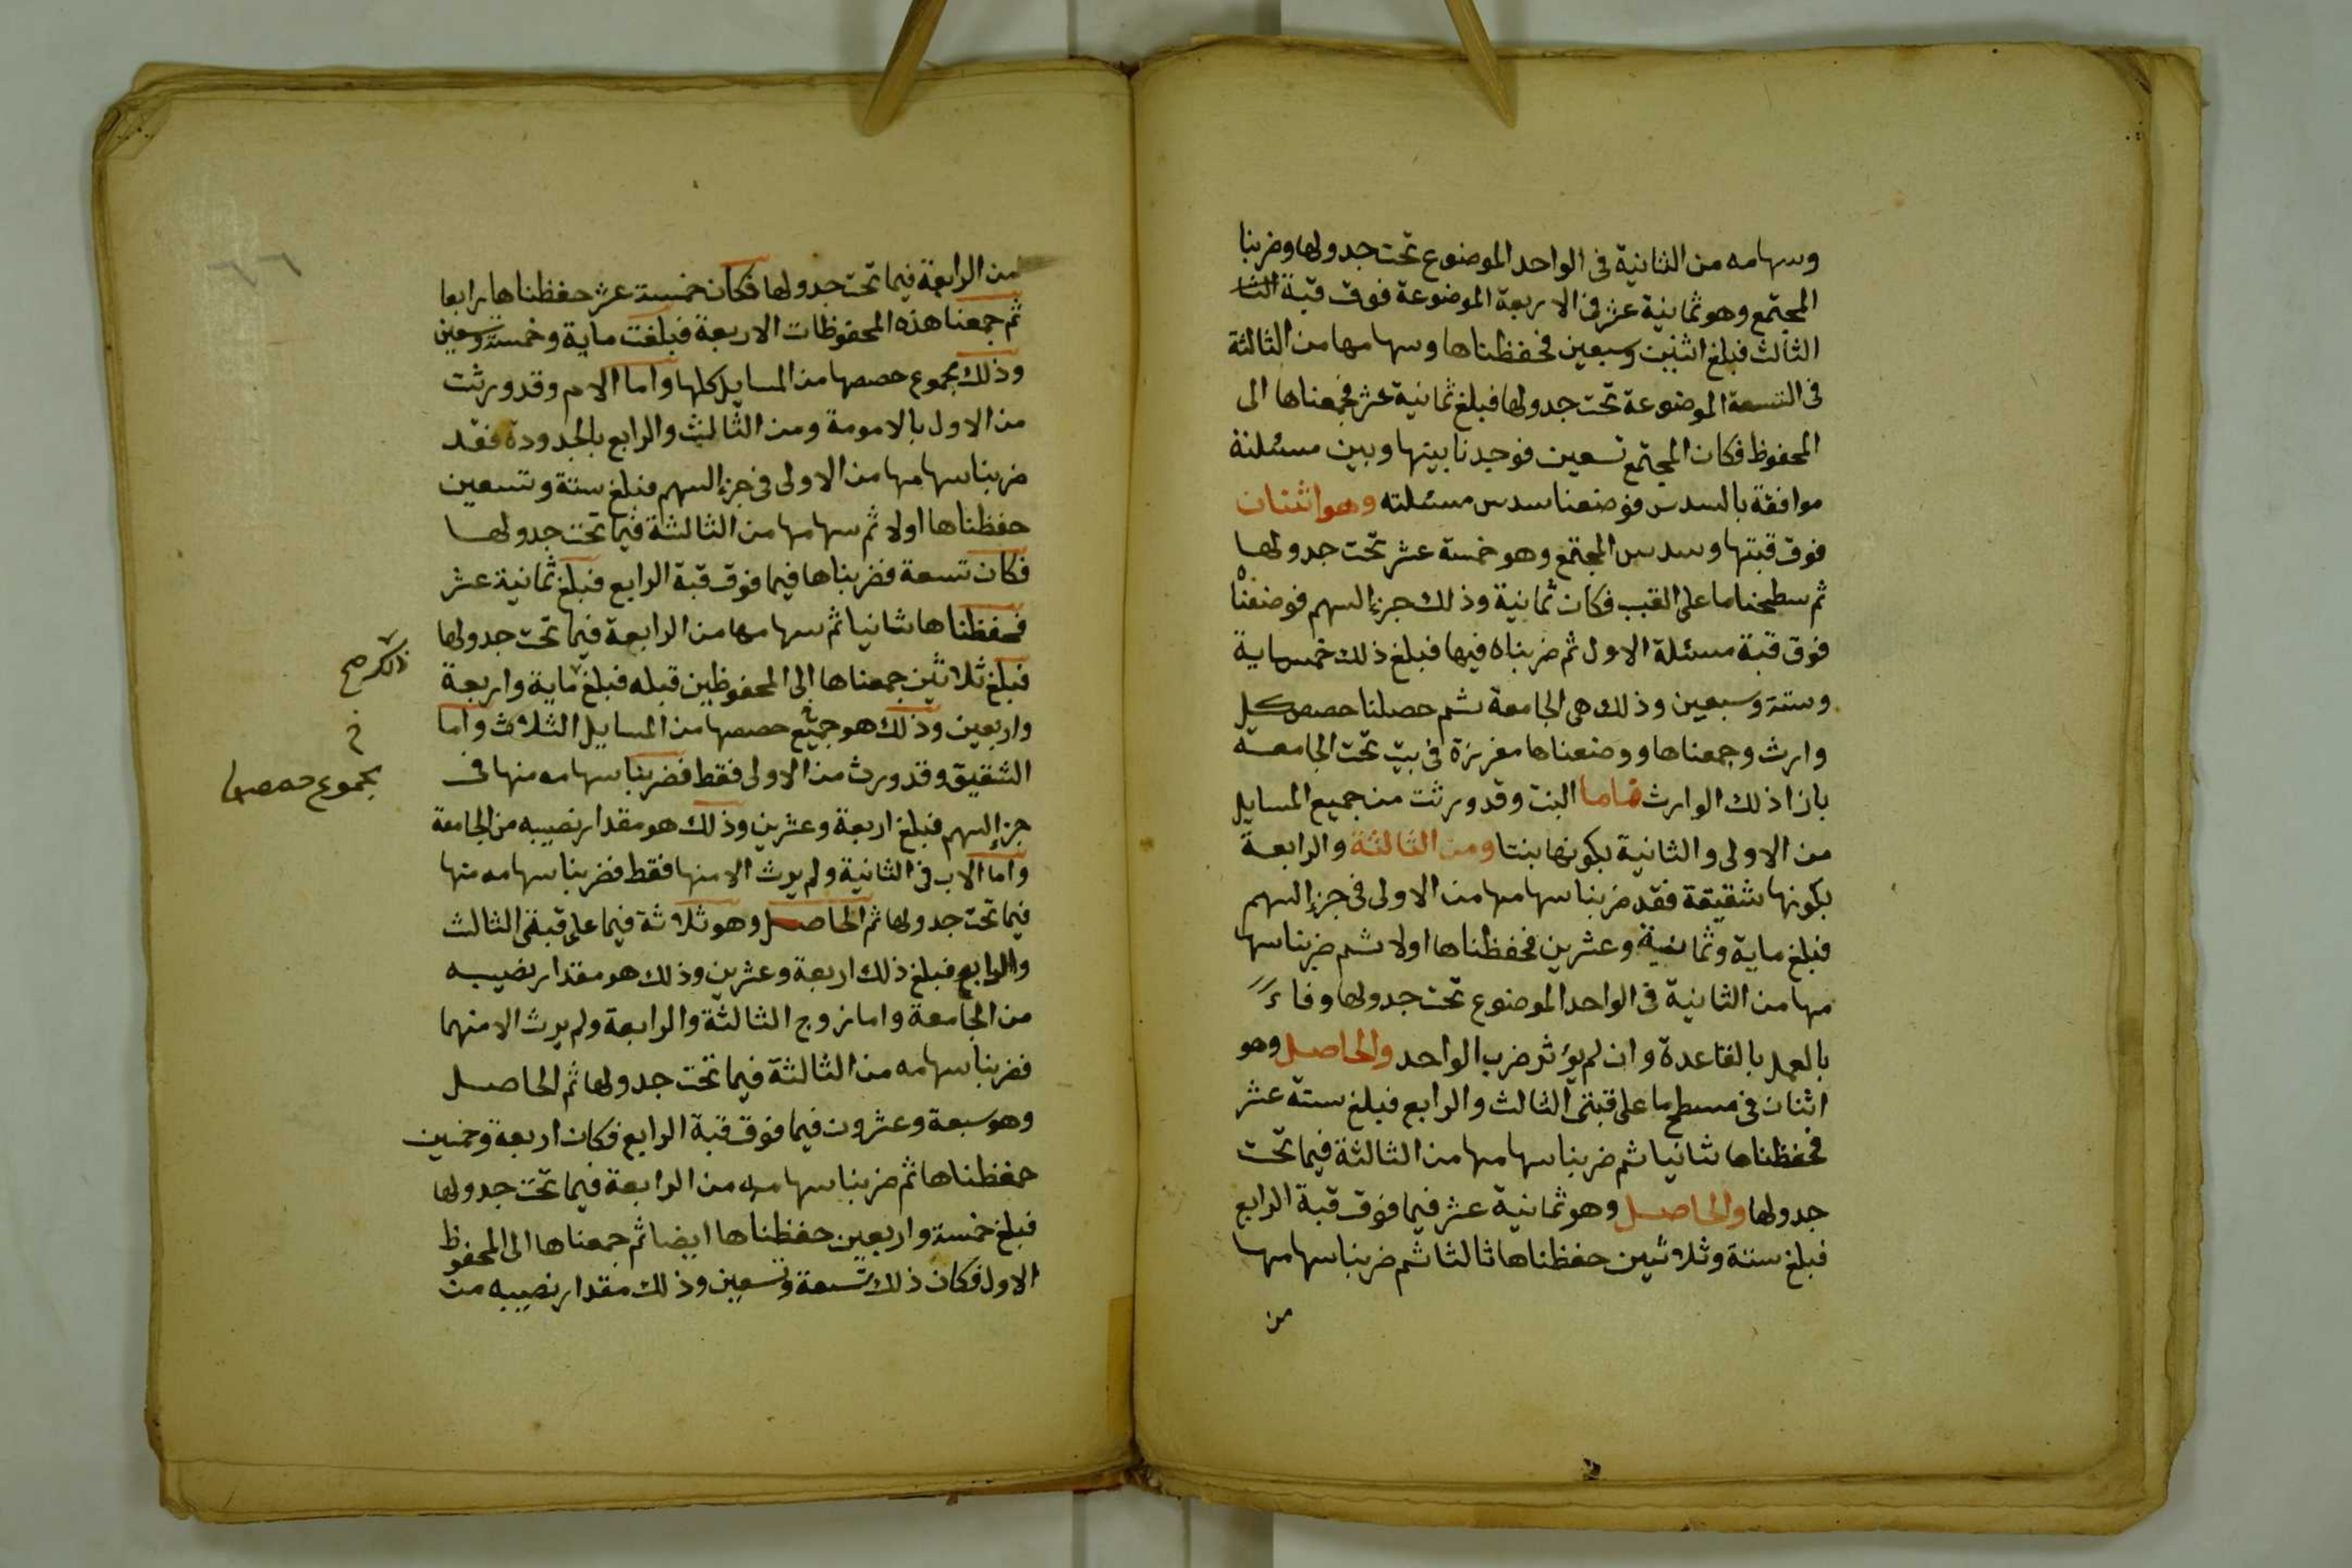 وسهامه من الثانية في الواحد الموضوع تحت جدولها وضربنا
المجتمع وهو ثمانية عشر في الاربعة الموضوعة فوق قبة الثا
الثالث فبلغ اثنين وسبعين فحفظناها وسهامها من الثالثة
في التسعة الموضوعة تحت جدولها فبلغ ثمانية عشر فجمعناها الى
المحفوظ فكان المجتمع تسعين فوجدنا بينها وبين مسئلته
موافقة بالسدس فوضعنا سدس مسئلته وهو اثنان
فوق قبتها وسدس المجتمع وهو خمسة عشر تحت جدولها
ثم سطحنا ما على القبب فكان ثمانية وذلك جزء السهم فوضعناه
فوق قبة مسئلة الاول ثم ضربناه فيها فبلغ ذلك خمسماية
وستة وسبعين وذلك هي الجامعة ثم حصلنا حصص كل
وارث وجمعناها ووضعناها مفرزة في بيت تحت الجامعة
بازا ذلك الوارث فاما البنت وقد ورثت من جميع المسايل
من الاولى والثانية بكونها بنتا ومن الثالثة والرابعة
بكونها شقيقة فقد ضربنا سهامها من الاولى في جزء السهم
فبلغ ماية وثمانية وعشرين فحفظناها اولا ثم ضربنا سها
مها من الثانية في الواحد الموضوع تحت جدولها وفاءً
بالعمل بالقاعدة وان لم يؤثر ضرب الواحد والحاصل وهو
اثنان في مسطح ما على قبتي الثالث والرابع فبلغ ستة عشر
فحفظناها ثانيا ثم ضربنا سهامها من الثالثة فيما تحت
جدولها والحاصل وهو ثمانية عشر فيما فوق قبة الرابع
فبلغ ستة وثلاثين حفظناها ثالثا ثم ضربنا سهامها
من
من الرابعة فيما تحت جدولها فكان خمسة عشر حفظناها رابعا
ثم جمعنا هذه المحفوظات الاربعة فبلغت ماية وخمسة وتسعين
وذلك مجموع حصصها من المسايل كلها واما الام وقد ورثت
من الاول بالامومة ومن الثالث والرابع بالجدودة فقد
ضربنا سهامها من الاولى في جزء السهم فبلغ ستة وتسعين
حفظناها اولا ثم سهامها من الثالثة فيما تحت جدولها
فكان تسعة فضربناها فيما فوق قبة الرابع فبلغ ثمانية عشر
فحفظناها ثانيا ثم سهامها من الرابعة فيما تحت جدولها
فبلغ ثلاثين جمعناها الى المحفوظين قبله فبلغ ماية واربعة
واربعين وذلك هو جميع حصصها من المسايل الثلاث واما
الشقيق وقد ورث من الاولى فقط فضربنا سهامه منها في
جزء السهم فبلغ اربعة وعشرين وذلك هو مقدار نصيبه من الجامعة
واما الاب في الثانية ولم يرث الا منها فقط فضربنا سهامه منها
فيما تحت جدولها ثم الحاصل وهو ثلاثة فيما على قبتي الثالث
والرابع فبلغ ذلك اربعة وعشرين وذلك هو مقدار نصيبه
من الجامعة واما زوج الثالثة والرابعة ولم يرث الا منهما
فضربنا سهامه من الثالثة فيما تحت جدولها ثم الحاصل
وهو سبعة وعشرون فيما فوق قبة الرابع فكان اربعة وخمسين
حفظناها ثم ضربنا سهامه من الرابعة فيما تحت جدولها
فبلغ خمسة واربعين حفظناها ايضا ثم جمعناها الى المحفوظ
الاول فكان ذلك تسعة وتسعين وذلك مقدار نصيبه من
مجموع حصصها